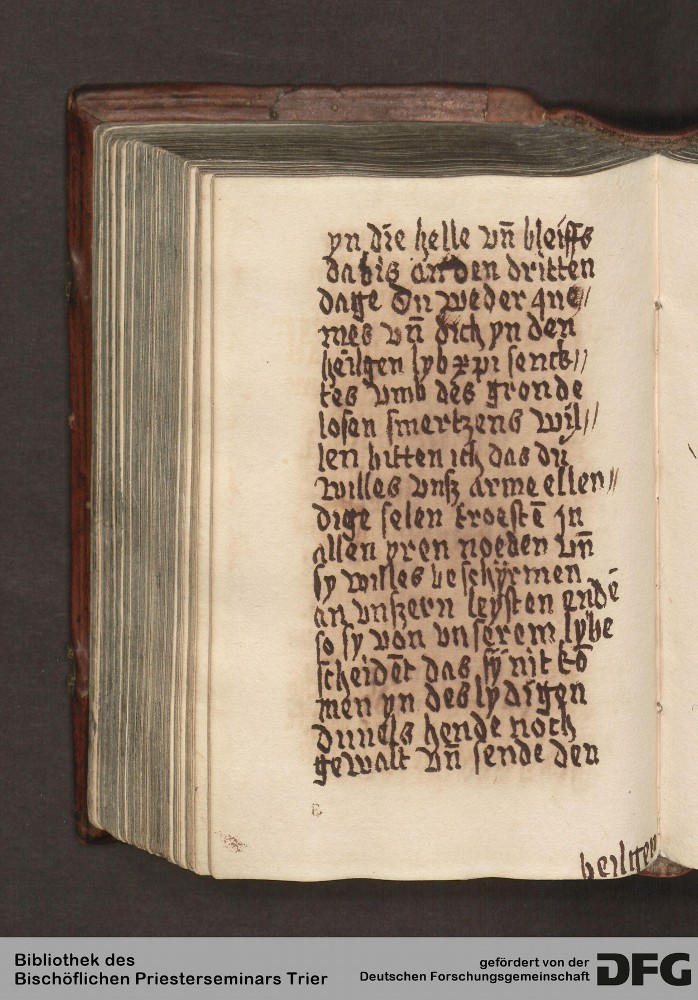 yn die helle vn̄ bleiffs
da bis an den dritten
dage Du weder qne//
mes vn̄ dich yn den
heilgen lyb xp̄i senck//
tes vmb des gronde
losen smertzens wil//
len bitten ich das du
willes vnsz arme ellen//
dige selen troestē in
allen yren noeden vn̄
sy willes beschyrmen
an vnszern leysten endē
so sy von vnserem lybe
scheidēt das sy nit kō
men yn des lydigen
duuels hende noch
gewalt vn̄ sende den
heilgen
Bibliothek des
Bischöflichen Priesterseminars Trier
gefördert von der
Deutschen Forschungsgemeinschaft
DFG